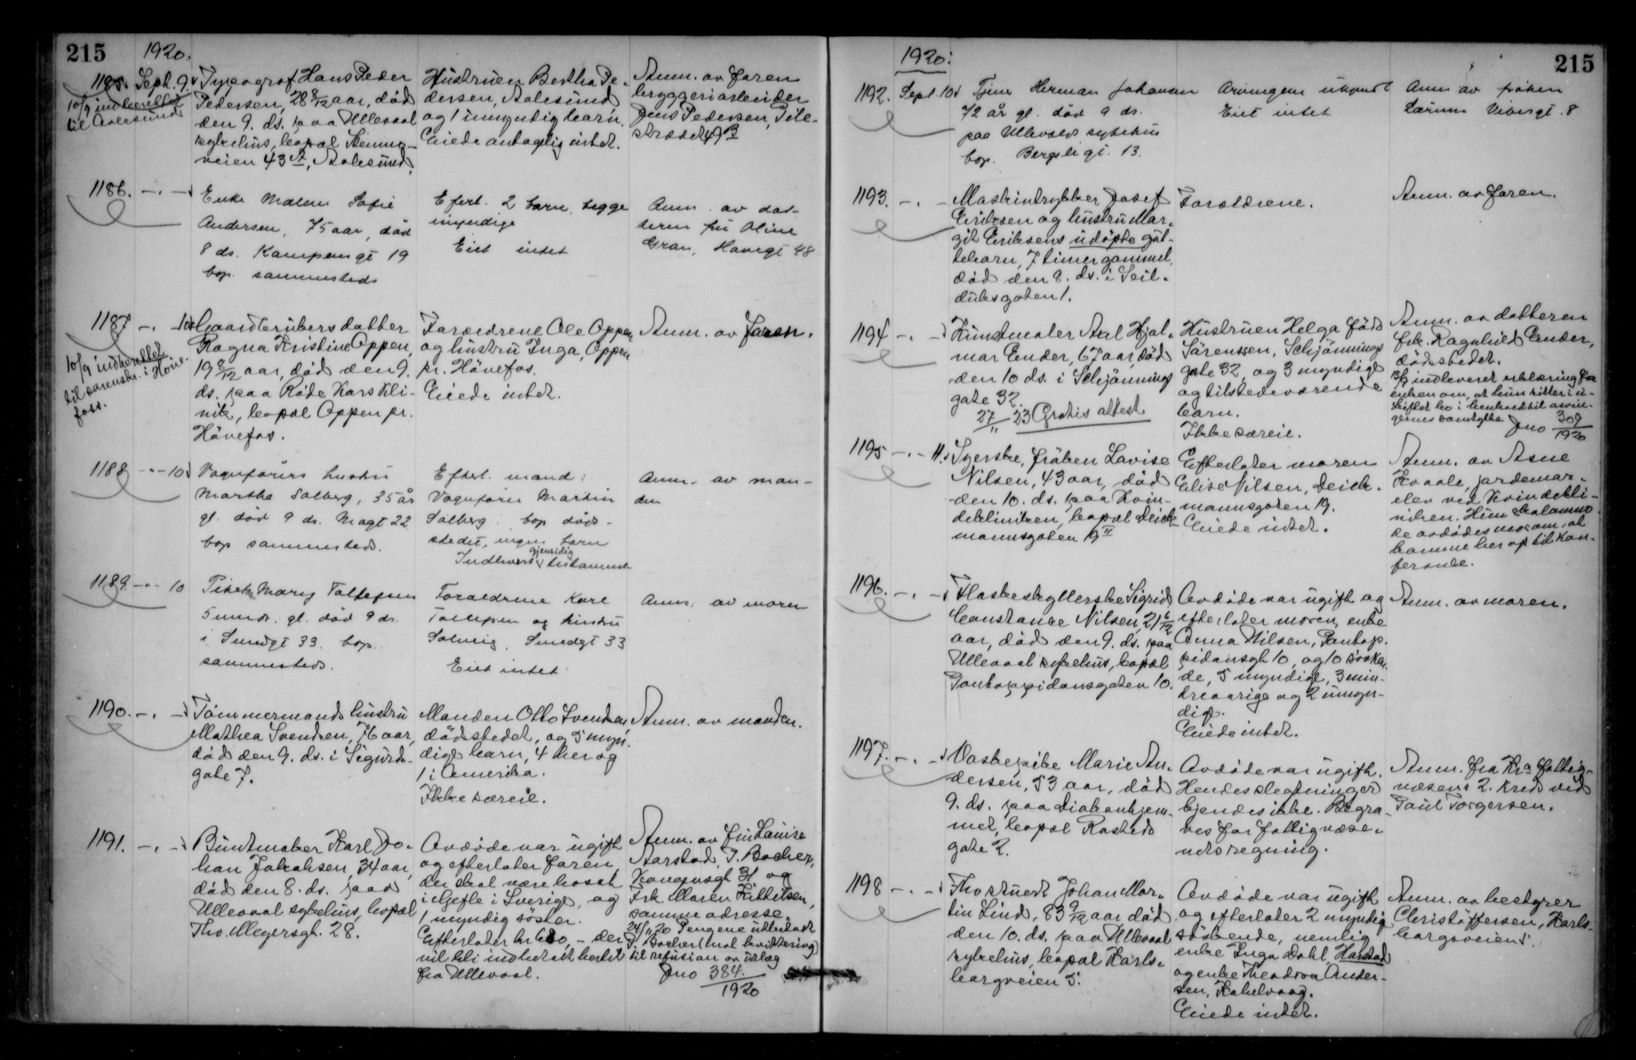 215
1920.
1185. Sept. 9.
10/9 indberettet
til Aalesund
Typograf Hans Peder
Pedersen, 28 8/12 aar, død
den 9. ds. paa Ullevaal
sykehus, bopæl
veien 43 A, Aalesund.
Hustruen Bertha Pe-
dersen, Aalesund
og 1 umyndig barn.
Eiede antagelig intet.
Anm. av faren
bryggeriarbeider
Jens Pedersen, Pile-
strædet 49 B
1186. -.-
Enke Malene Sofie
Andersen, 75 aar, død
8 ds. Kampengt 19
bop. sammesteds
Efterl. 2 barn begge
myndige
Eiet intet
Anm. av dat-
teren fru Oline
Gran, Havegt 48
1187 -.- 10
10/9 indberettet
til sorenskr. i Høne-
foss.
Gaardbrukers datter
Ragna Kristine Oppen,
19 8/12 aar, død den 9.
ds. paa Røde Kors Kli-
nik, bopæl Oppen pr.
Hønefos.
Forældrene Ole Oppen
og hustru Inga, Oppen
pr. Hønefos.
Eiede intet.
Anm. av faren.
1188 -.- 10
Vognfører hustru
Martha Solberg, 35 år
gl. død 9 ds. Magt 22
bop sammesteds.
Efterl. mand:
Vognfører Martin
Solberg bop døds-
stedet, ingen barn
Indlevert gjensidig testamente
Anm. av man-
den
1189. -.- 10
Pikebarn Mary Tollefsen
5 mndr. gl. død 9 ds.
i Smedgt 33. bop.
sammesteds.
Forældrene Karl
Tollefsen og hustru
Solveig, Smedgt 33
Eiet intet
Anm: av moren
1190. -.-
Tømmermands hustru
Mathea Svendsen, 76 aar,
død den 9. ds. i Sigurds-
gate 7.
Manden Otto Svendsen
dødsstedet, og 5 myn-
dige barn, 4 her og
1 i Amerika.
Ikke særeie.
Anm. av manden.
1191. -.-
Buntmaker Karl Jo-
han Jakobsen, 34 aar,
død den 8. ds. paa
Ullevaal sykehus, bopæl
Ths. Meyersgt. 28.
Avdøde var ugift
og efterlater faren,
der skal være bosat
i Gefle i Sverige, og
1 myndig søster.
Efterlater kr 680,- der
vil bli indbetalt hertil
fra Ullevaal.
Anm. av fru Louise
Aarstad, I. Bocher,
Kongensgt 31 og
Frk. Maren Kittelsen,
samme adresse.
24/11 20 Pengene utbetalt
I. Bocher (mot kvittering)
til refusion av utlæg
Jno 384.
1920
1920:
215
1192. Sept. 10
Herman Johansen
72 år gl. død 9 ds.
paa Ullevaal sykehus
bop. Bergsligt. 13.
Arvingene ukjendt
Eiet intet
Anm av frøken
Vibesgt. 8
1193. -.-
Maskintrykker Josef
Eriksen og hustru Mar-
git Eriksens udøpte gut-
tebarn, 7 timer gammel,
død den 8. ds. i Seil-
duksgaten 1.
Forældrene.
Anm. av faren.
1194 -.-
Kunstmaler Axel Hjal-
mar Ender, 67 aar, død
den 10 ds. i Schjønnings
gate 32.
27/11 23 Gratis attest
Hustruen Helga født
Sørenssen, Schjønnings
gate 32 og 3 myndige
og tilstedeværende
barn.
Ikke særeie.
Anm. av datteren
frk. Ragnhild Ender,
dødsstedet.
13/9 indleveret erklæring fra
enken om, at hun sitter i u-
skiftet bo i henhold til arvin-
gernes samtykke Jno 309
1920
1195 -.- 11.
Syerske, frøken Lovise
Nilsen, 43 aar, død
den 10. ds. paa Kvin-
deklinikken, bopæl Deich-
mannsgaten 19 II
Efterlater moren
Elise Nilsen, Deich-
mannsgaten 19.
Eiede intet.
Anm. av Asne
Kvaale, jordemor-
elev ved Kvindekli-
nikken. Hun skal anmo-
de avdødes mor om at
komme her op til kon-
feranse.
1196. -.-
Flaskeskyllerske Sigrid
Constance Nilsen, 21 6/12
aar, død den 9. ds. paa
Ullevaal sykehus, bopæl
Pontoppidansgaten 10.
Avdøde var ugift og
efterlater moren, enke
Anna Nilsen, Pontop-
pidansgt. 10, og 10 søsken-
de, 5 myndige, 3 min-
dreaarige og 2 umyn-
dige.
Eiede intet.
Anm. av moren.
1197. -.-
Vaskepike Marie An-
dersen, 53 aar, død
9. ds. paa Diakonhjem-
met, bopæl Rosteds
gate 2.
Avdøde var ugift.
Hendes slegtninger
kjendes ikke. Begra-
ves for fattigvæse-
nets regning.
Anm. fra Kra fattig-
væsens 2. kreds ved
Paul Torgersen.
1198 -.-
Fhv stuert Johan Mar-
tin Lind, 83 9/12 aar, død
den 10. ds. paa Ullevaal
sykehus, bopæl Karls-
borgveien 5.
Avdøde var ugift
og efterlater 2 myndige
søskende, nemlig
enke Inga Dahl, Harstad
og enke Theodora Ander-
sen, Kabelvaag.
Eiede intet.
Anm. av bestyrer
Christoffersen, Karls-
borgveien 5.